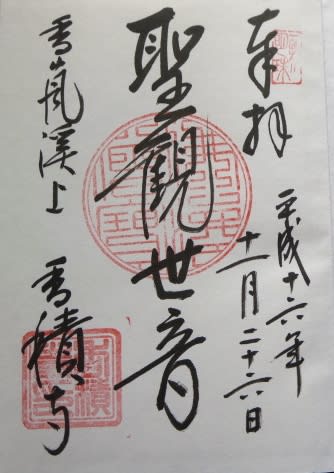 奉拝
平成十六年
十一月二十六日
聖觀世音
香嵐溪上 香積寺